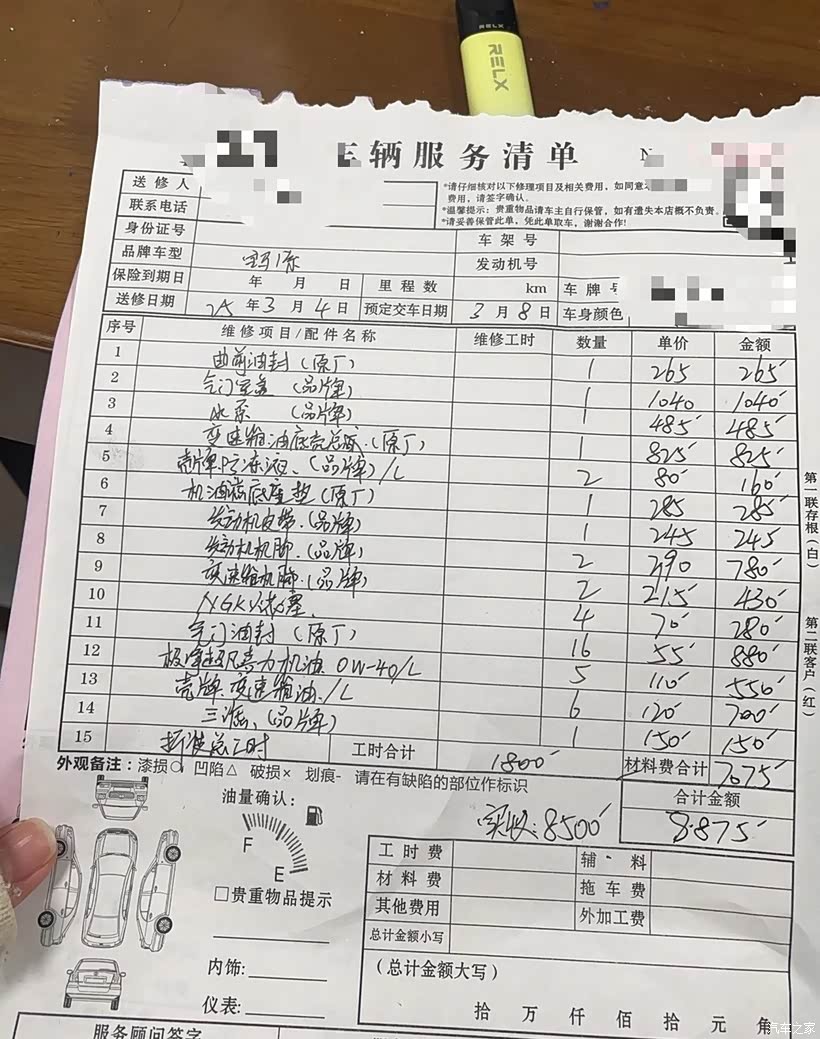 RELX
RELX
辆服务清单
N
送修人
*请仔细核对以下修理项目及相关费用，如同意
费用，请签字确认。
联系电话
*温馨提示：贵重物品请车主自行保管，如有遗失本店概不负责。
*请妥善保管此单，凭此单取车，谢谢合作!
身份证号
车架号
品牌车型
发动机号
保险到期日 年 月 日 里程数 km 车牌号
送修日期 25年3月4日 预定交车日期 3月8日 车身颜色
序号 维修项目/配件名称 维修工时 数量 单价 金额
1 曲前油封（原厂） 1 265 265
2 气门室盖（品牌） 1 1040 1040
3 水泵（品牌） 1 485 485
4 变速箱油底壳总成.（原厂） 1 825 825
5 壳牌防冻液、（品牌）/L 2 80 160
6 机油格底座垫（原厂） 1 285 285
7 发动机皮带.（品牌） 1 245 245
8 发动机机脚.（品牌） 2 390 780
9 变速箱机脚.（品牌） 2 215 430
10 NGK火花塞. 4 70 280
11 气门油封（原厂） 16 55 880
12 极净超凡喜力机油 0W-40/L 5 110 550
13 壳牌变速箱油./L 6 120 700
14 三滤、（品牌） 1 150 150
15 拆装总工时 工时合计 1800 材料费合计 7075
外观备注：漆损○ 凹陷△ 破损× 划痕- 请在有缺陷的部位作标识
合计金额
实收：8500
8.875
油量确认：
F
E
□贵重物品提示
内饰：
仪表：
工时费 辅料
材料费 拖车费
其他费用 外加工费
总计金额小写
（总计金额大写）
拾 万 仟 佰 拾 元 角
服务顾问签字
第一联存根（白）
第二联客户（红）
汽车之家